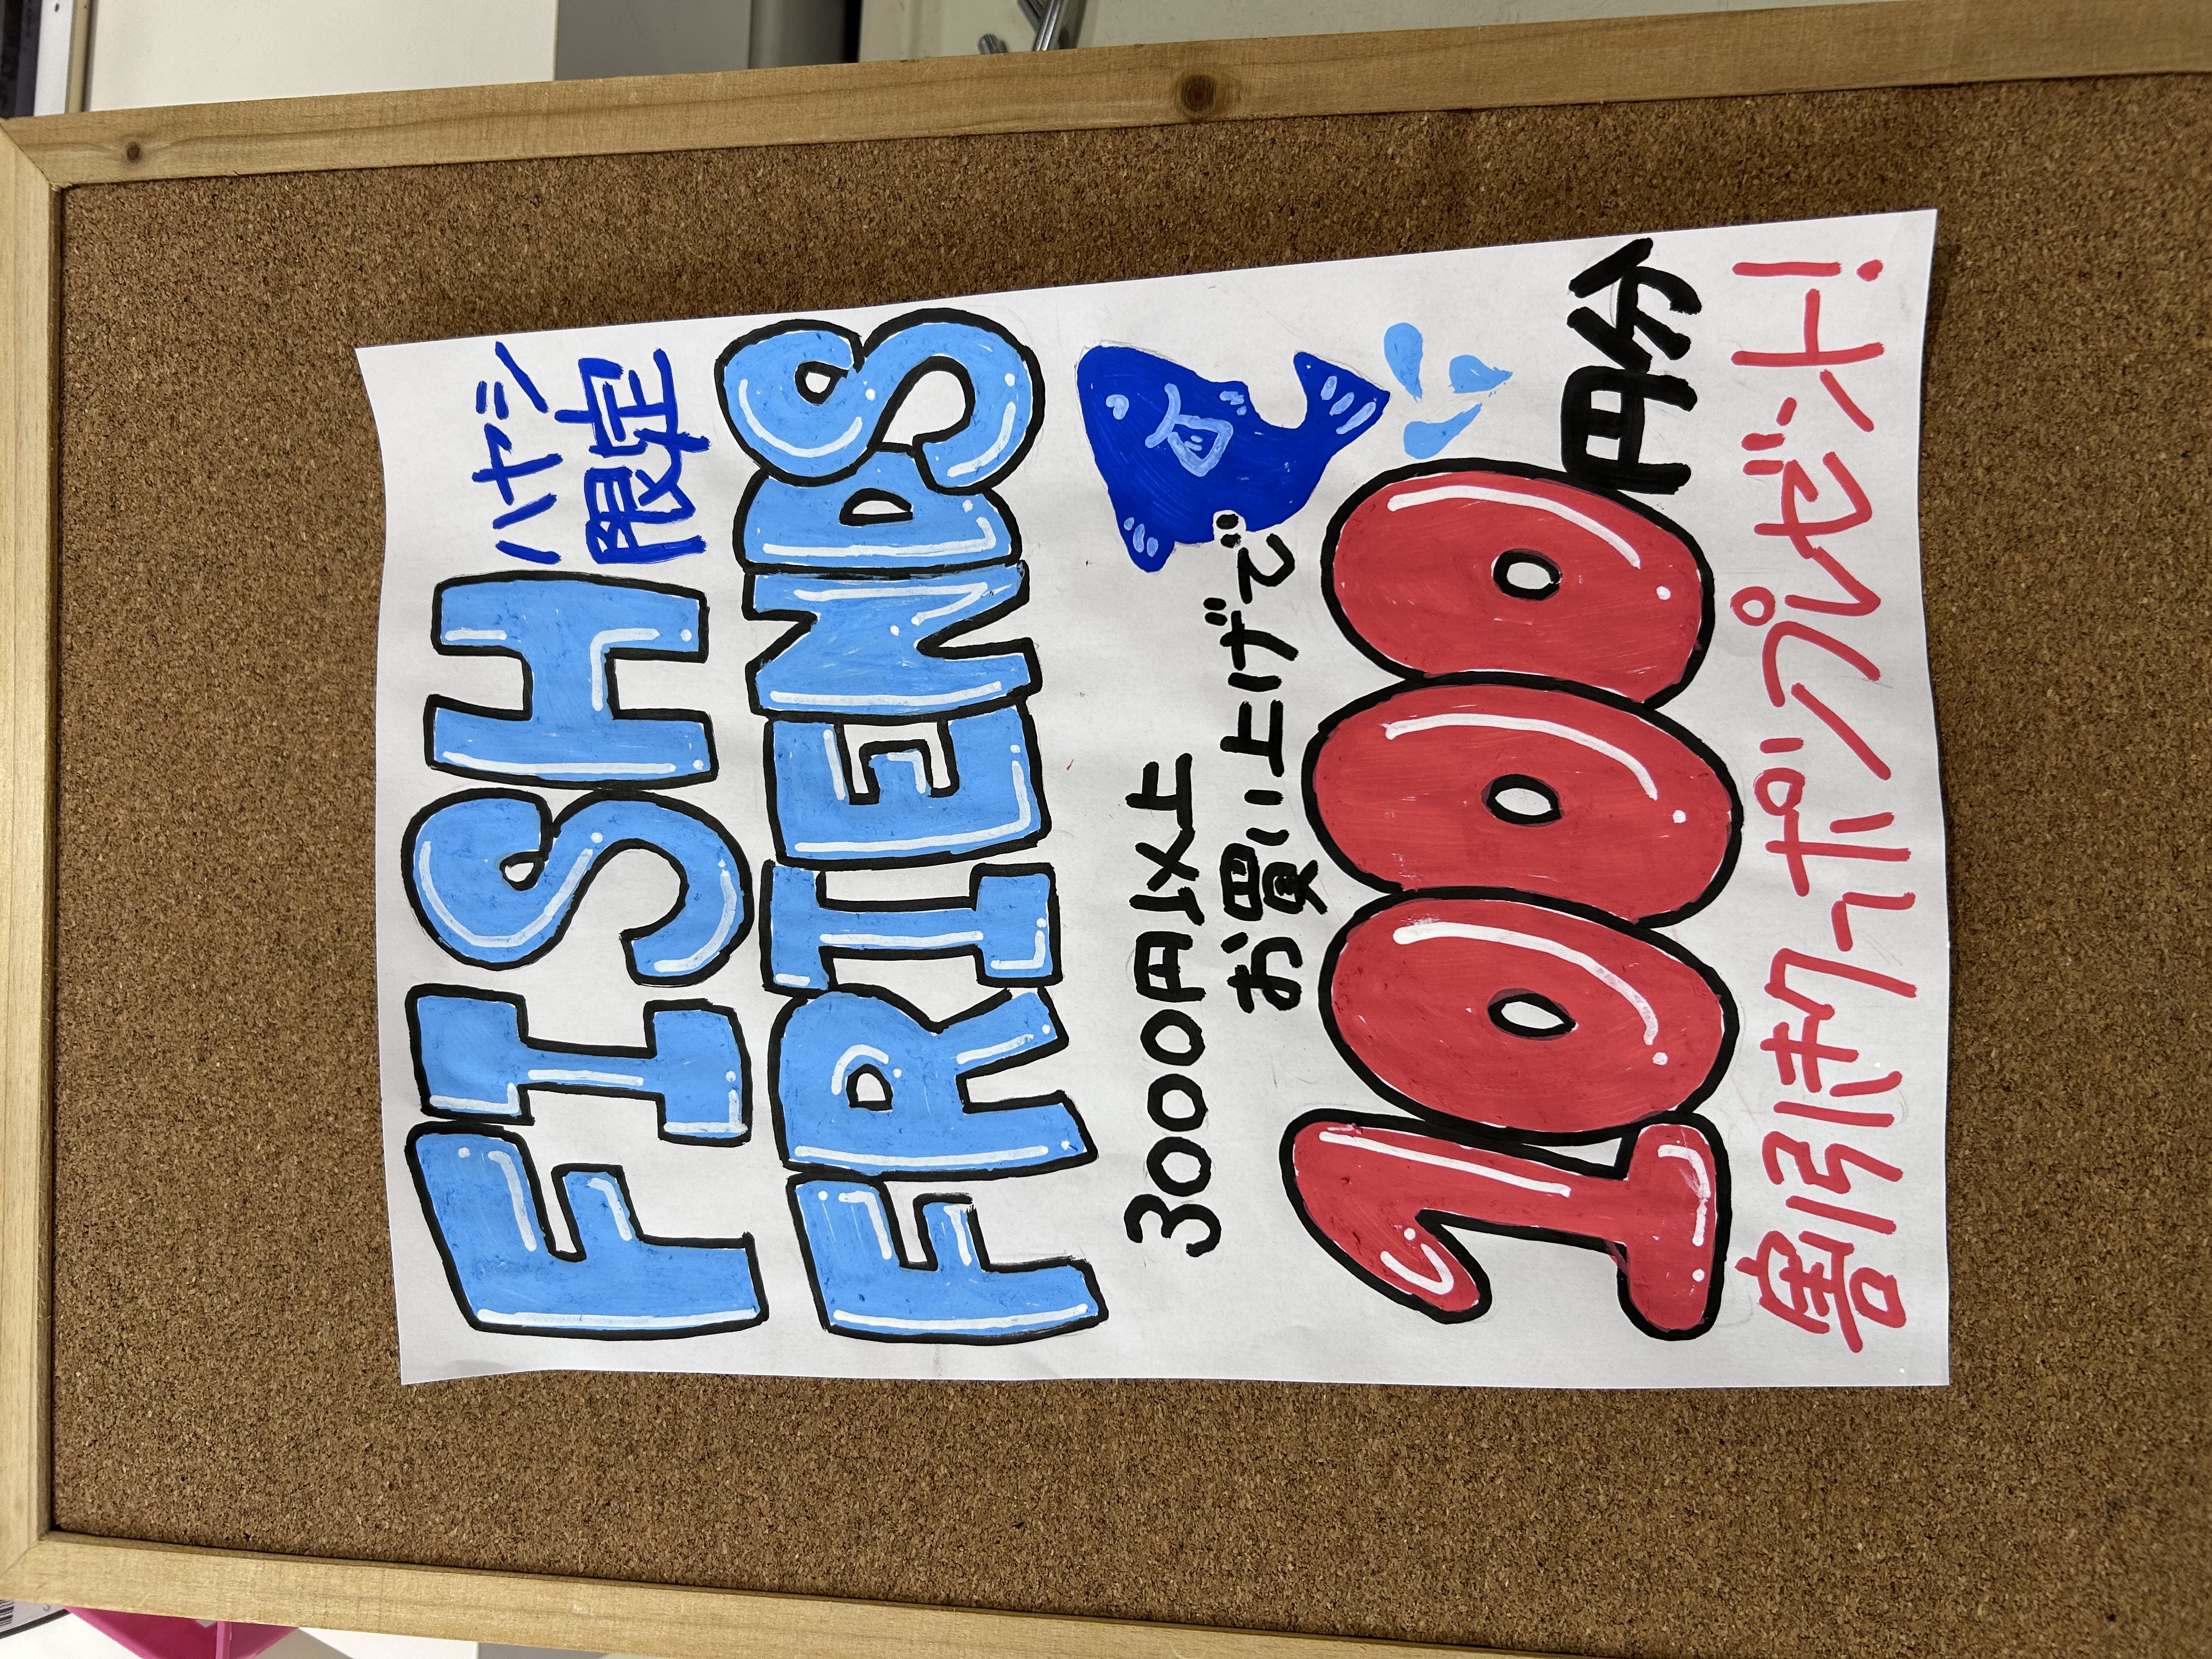 FISH ハヤシ限定
FRIENDS
3000円以上
お買い上げで
1000円分
割引きクーポンプレゼント!